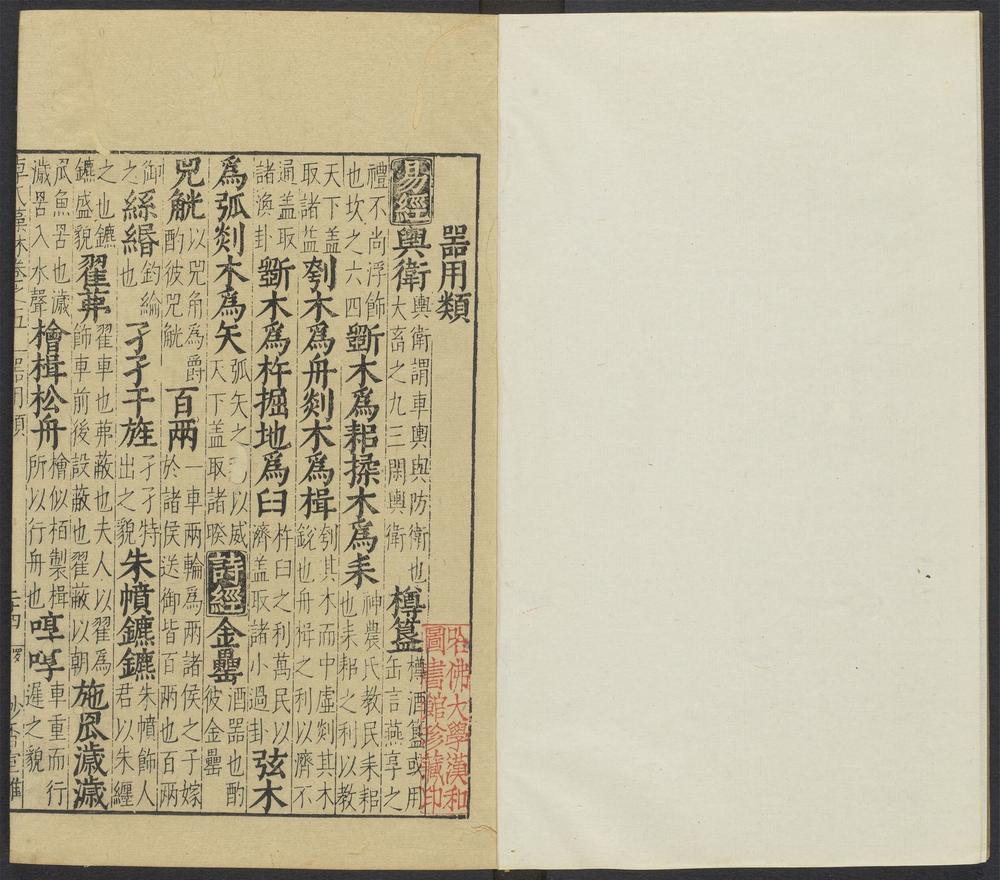 噐用類
哈佛大學漢和圖書館珍藏印
易經輿衛輿衛謂車輿與防衛也大畜之九三閑輿衛樽簋樽酒簋或用缶言燕享之
禮不尚浮飾也坎之六四斲木爲耜揉木爲耒神農氏教民耒耜也耒耜之利以教
天下蓋取諸益刳木爲舟剡木爲楫刳其木而中虛剡其木銳也舟楫之利以濟不
通蓋取諸渙卦斷木爲杵掘地爲臼杵臼之利萬民以濟蓋取諸小過卦弦木
爲弧剡木爲矢弧矢之以威天下蓋取諸睽詩經金罍酒器也酌彼金罍
兕觥以兕角爲爵酌彼兕觥百兩一車兩輪爲兩諸侯之子嫁於諸侯送御皆百兩也百兩
御之絲緡釣綸也孑孑干旌孑孑特出之貌朱幩鑣鑣朱幩飾人君以朱纏
之也鑣鑣盛貌翟茀翟車也茀蔽也夫人以翟爲飾車前後設蔽也翟蔽以朝施罛濊濊
罛魚罟也濊濊罟入水聲檜楫松舟檜似栢製楫所以行舟也啍啍車重而行遲之貌